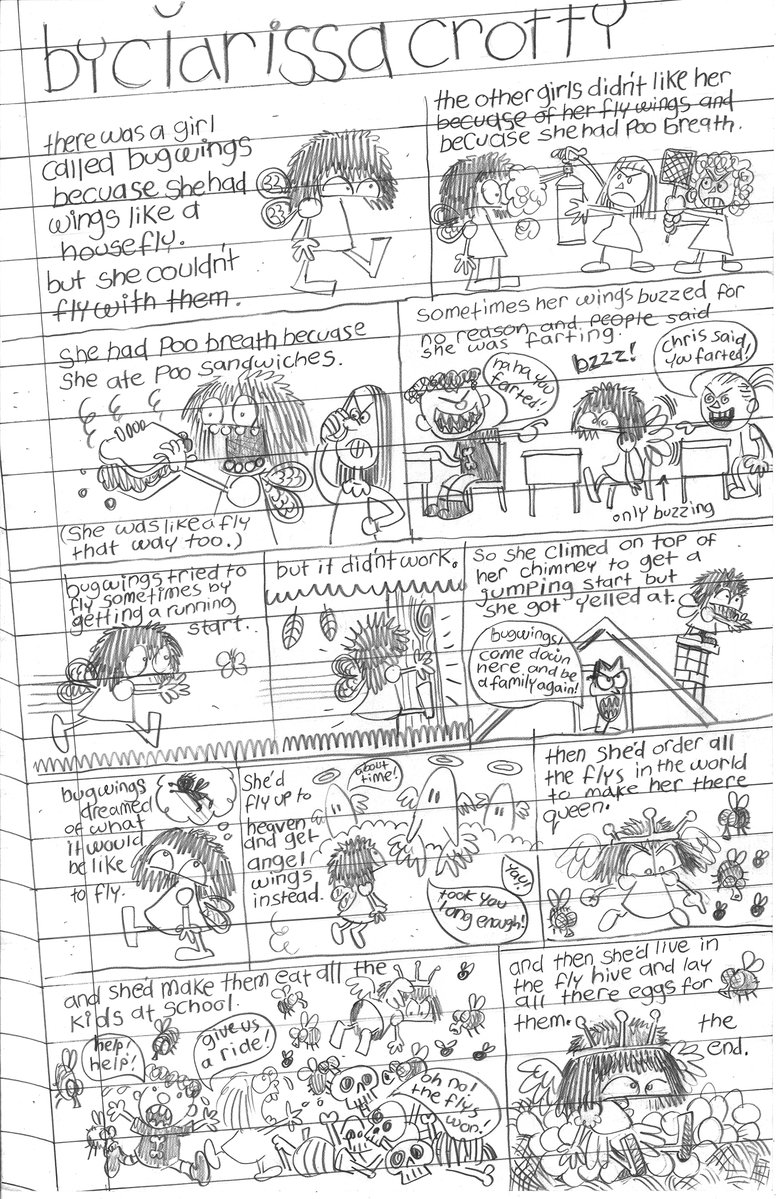 by clarissa crotty
there was a girl
called bugwings
becuase she had
wings like a
housefly.
but she couldn't
fly with them.
the other girls didn't like her
becuase of her fly wings and
becuase she had poo breath.
she had poo breath becuase
she ate poo sandwiches.
(she was like a fly
that way too.)
sometimes her wings buzzed for
no reason and people said
she was farting.
haha you
farted!
bzzz!
chris said,
you farted!
only buzzing
bugwings tried to
fly sometimes by
getting a running
start.
but it didn't work.
So she climed on top of
her chimney to get a
jumping start but
she got yelled at.
bugwings!
come down
here and be
a family again!
bugwings
dreamed
of what
it would
be like
to fly.
She'd
fly up to
heaven
and get
angel
wings
instead.
about
time!
yay!
took you
long enough!
then she'd order all
the flys in the world
to make her there
queen.
and she'd make them eat all the
kids at school.
help!
help!
give us
a ride!
oh no!
the flys
won!
and then she'd live in
the fly hive and lay
all there eggs for
them.
the
end.